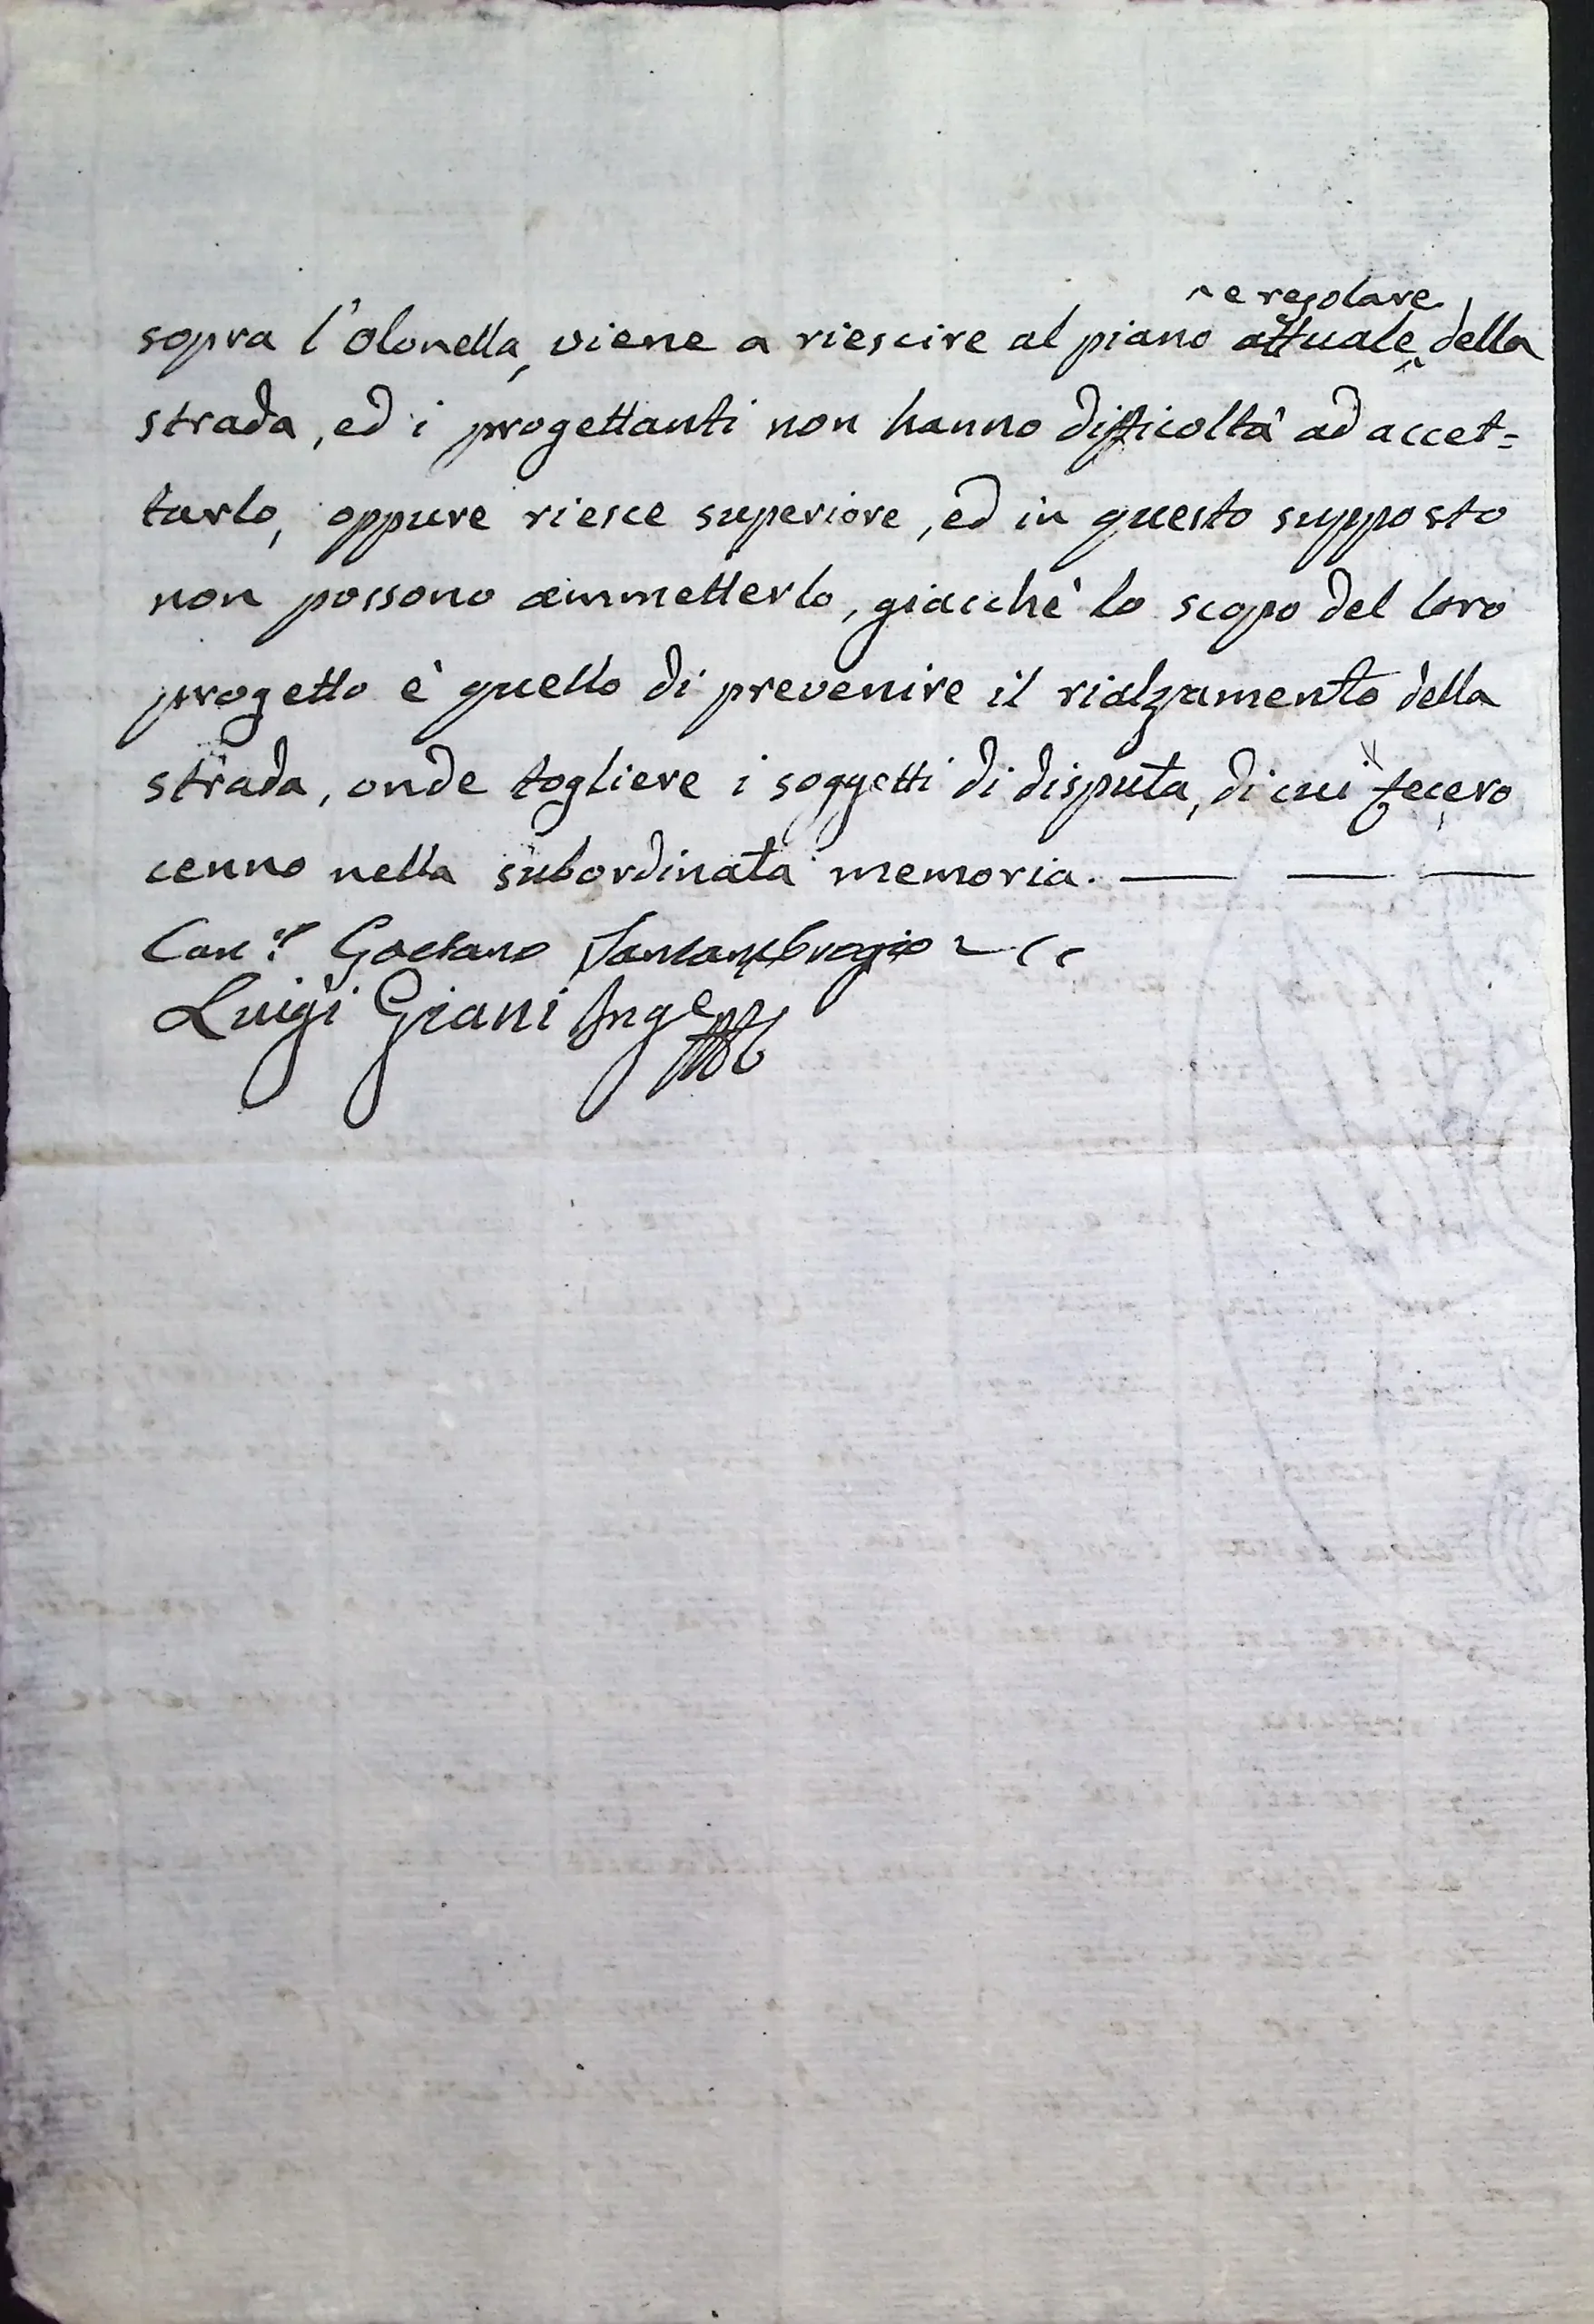 ^ e regolare
sopra l'Olonella, viene a riescire al piano attuale^ della
strada, ed i progettanti non hanno difficoltà ad accet=
tarlo, oppure riesce superiore, ed in questo supposto
non possono ammetterlo, giacchè lo scopo del loro
progetto è quello di prevenire il rialzamento della
strada, onde togliere i soggetti di disputa, di cui fecero
cenno nella subordinata memoria. — — —
Can.e Gaetano Santambrogio
Luigi Giani Inge